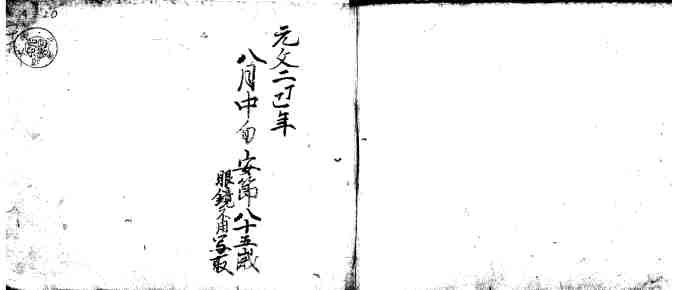 元文二丁巳年
八月中旬 安節八十五歳
眼鏡不用写取
20